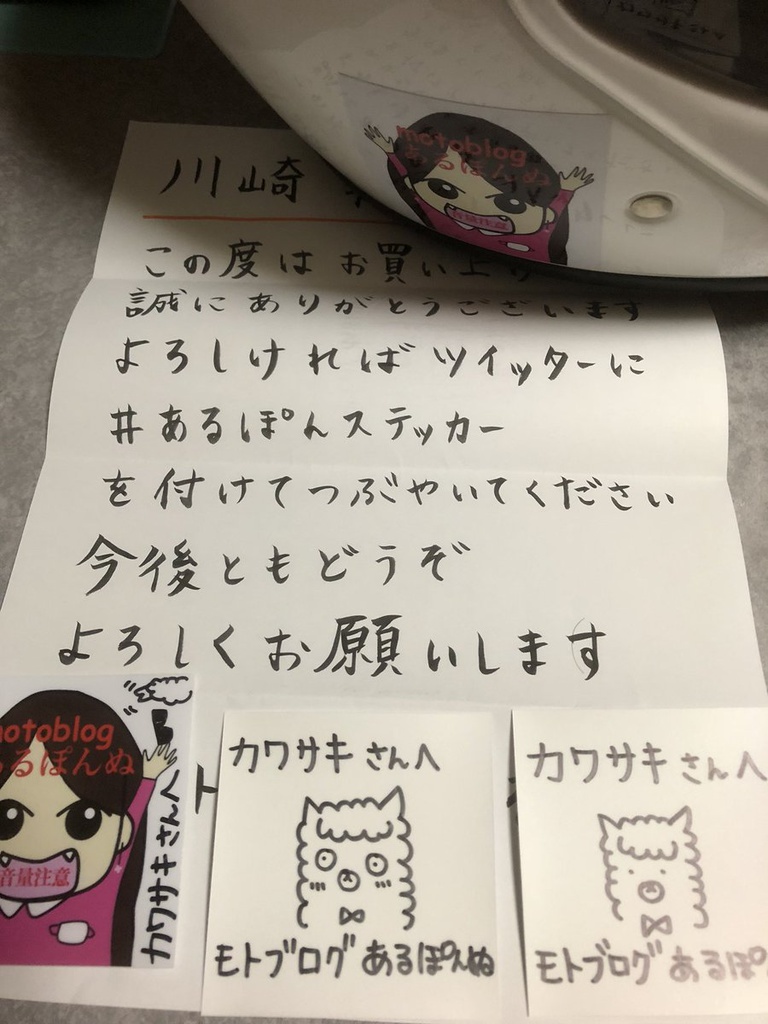 motoblog
あるぽんぬ
音量注意
川崎
この度はお買い上
誠にありがとうございます
よろしければツイッターに
#あるぽんステッカー
を付けてつぶやいてください
今後ともどうぞ
よろしくお願いします
motoblog
るぽんぬ
音量注意
カワサキさんへ
ト
カワサキさんへ
モトブログ あるぽんぬ
カワサキさんへ
モトブログ あるぽ